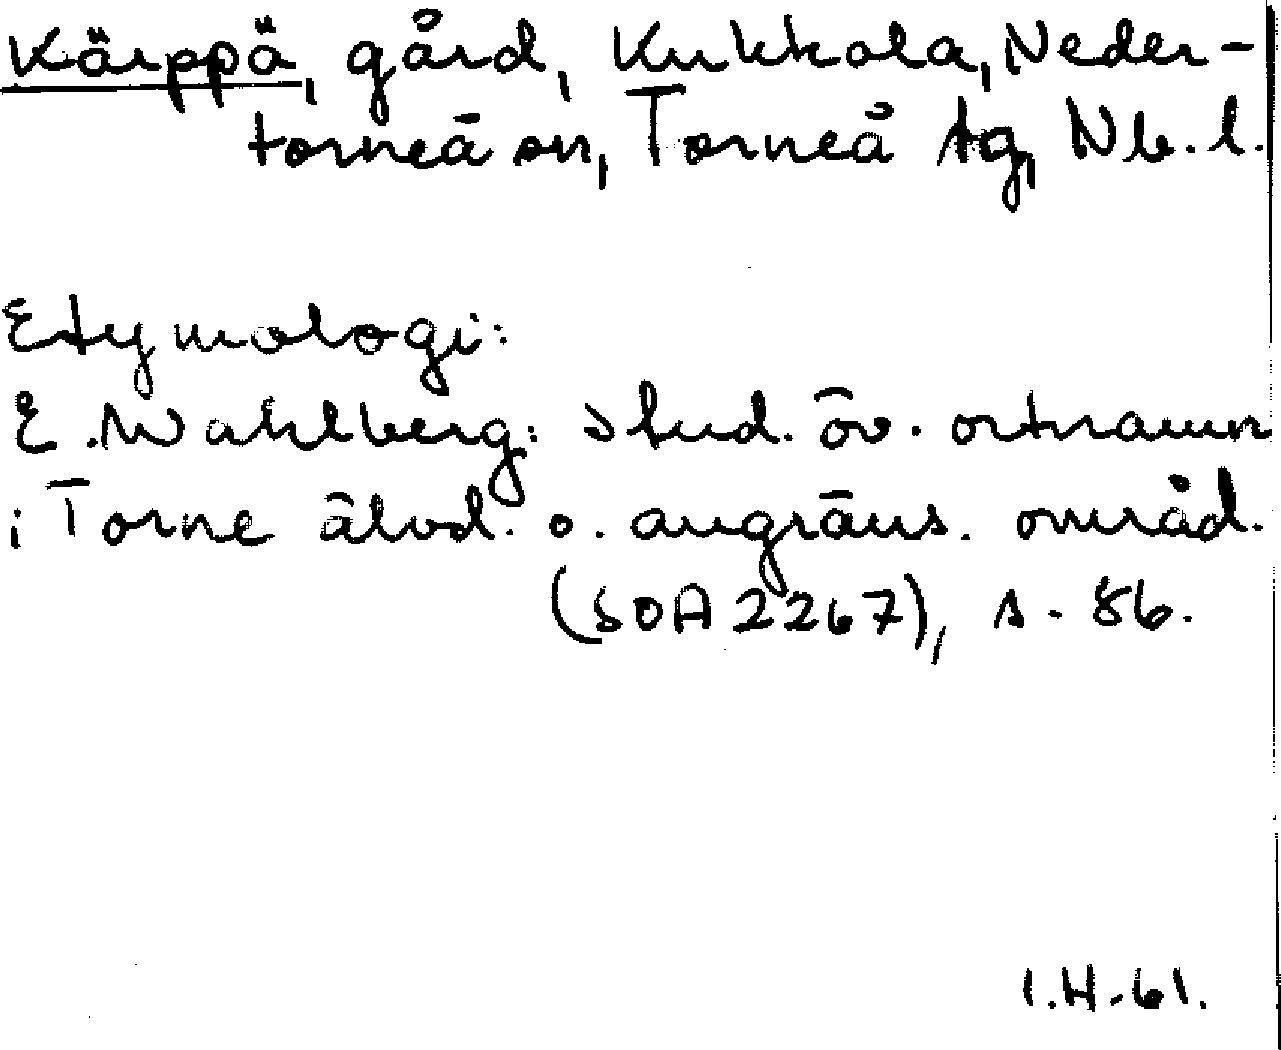 Kärppä, gård, Kukkola, Neder-
torneå sn, Torneå tg, Nb. l.
Etymologi:
E. Wahlberg: Stud. öv. ortnamn
i Torne älvd. o. angräns. områd.
(SOA 2267), s. 86.
I.H. 61.